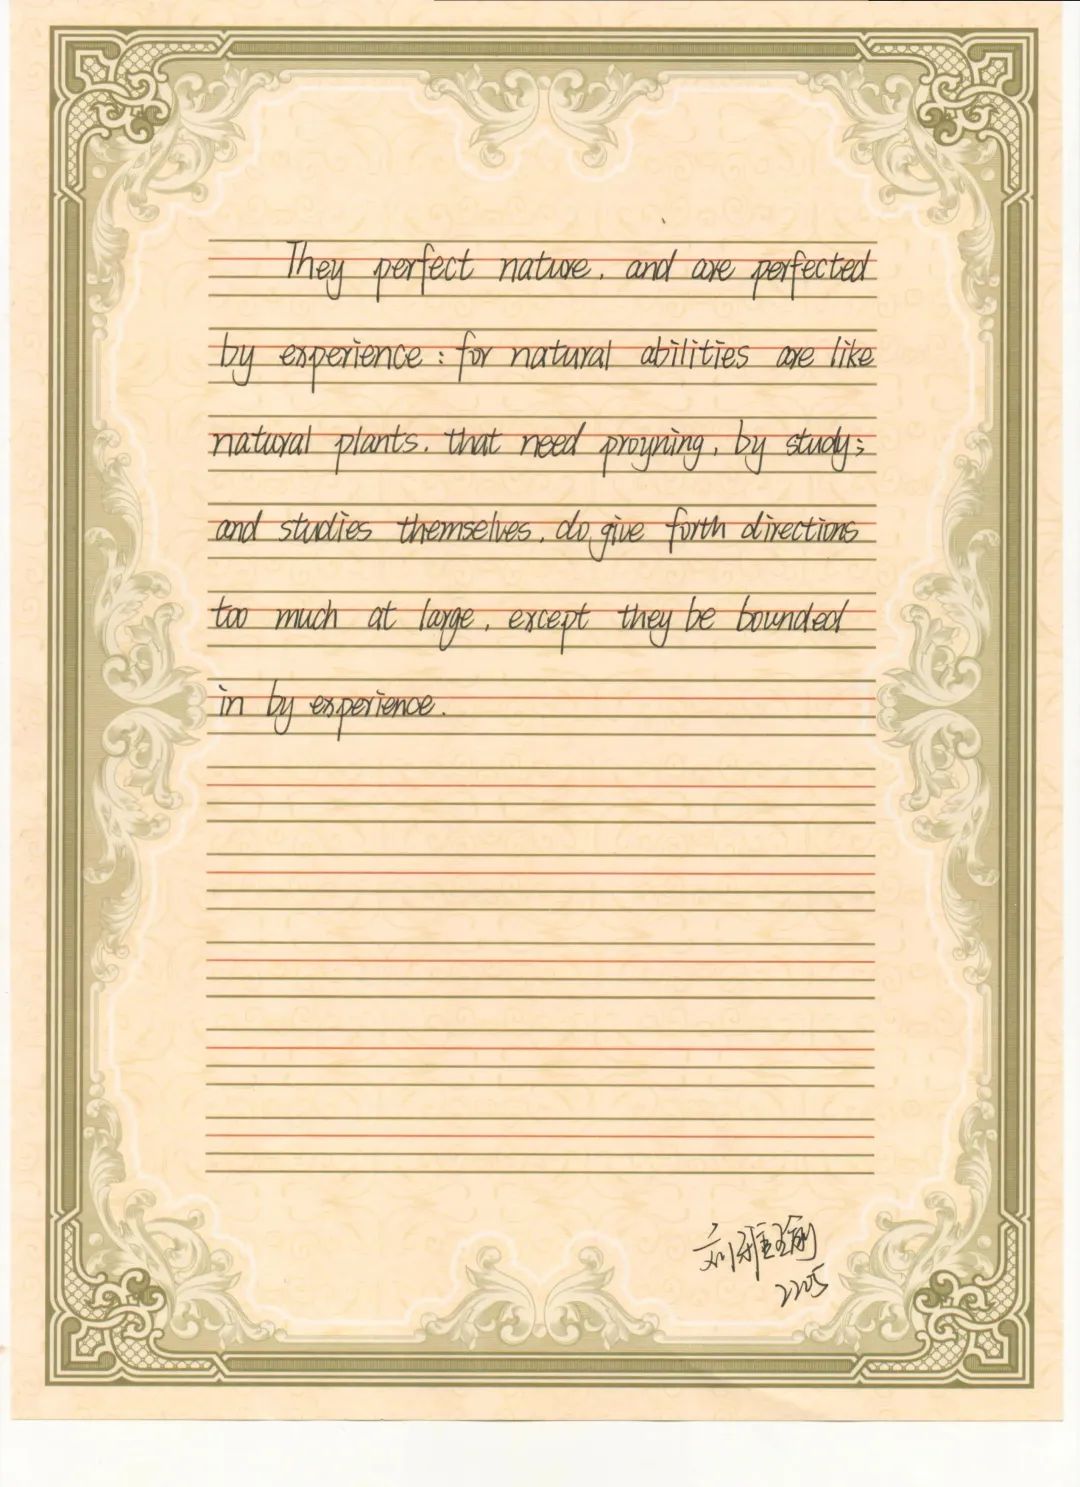 They perfect nature, and are perfected
by experience: for natural abilities are like
natural plants, that need proyning, by study;
and studies themselves, do give forth directions
too much at large, except they be bounded
in by experience.
刘雅瑜
2205